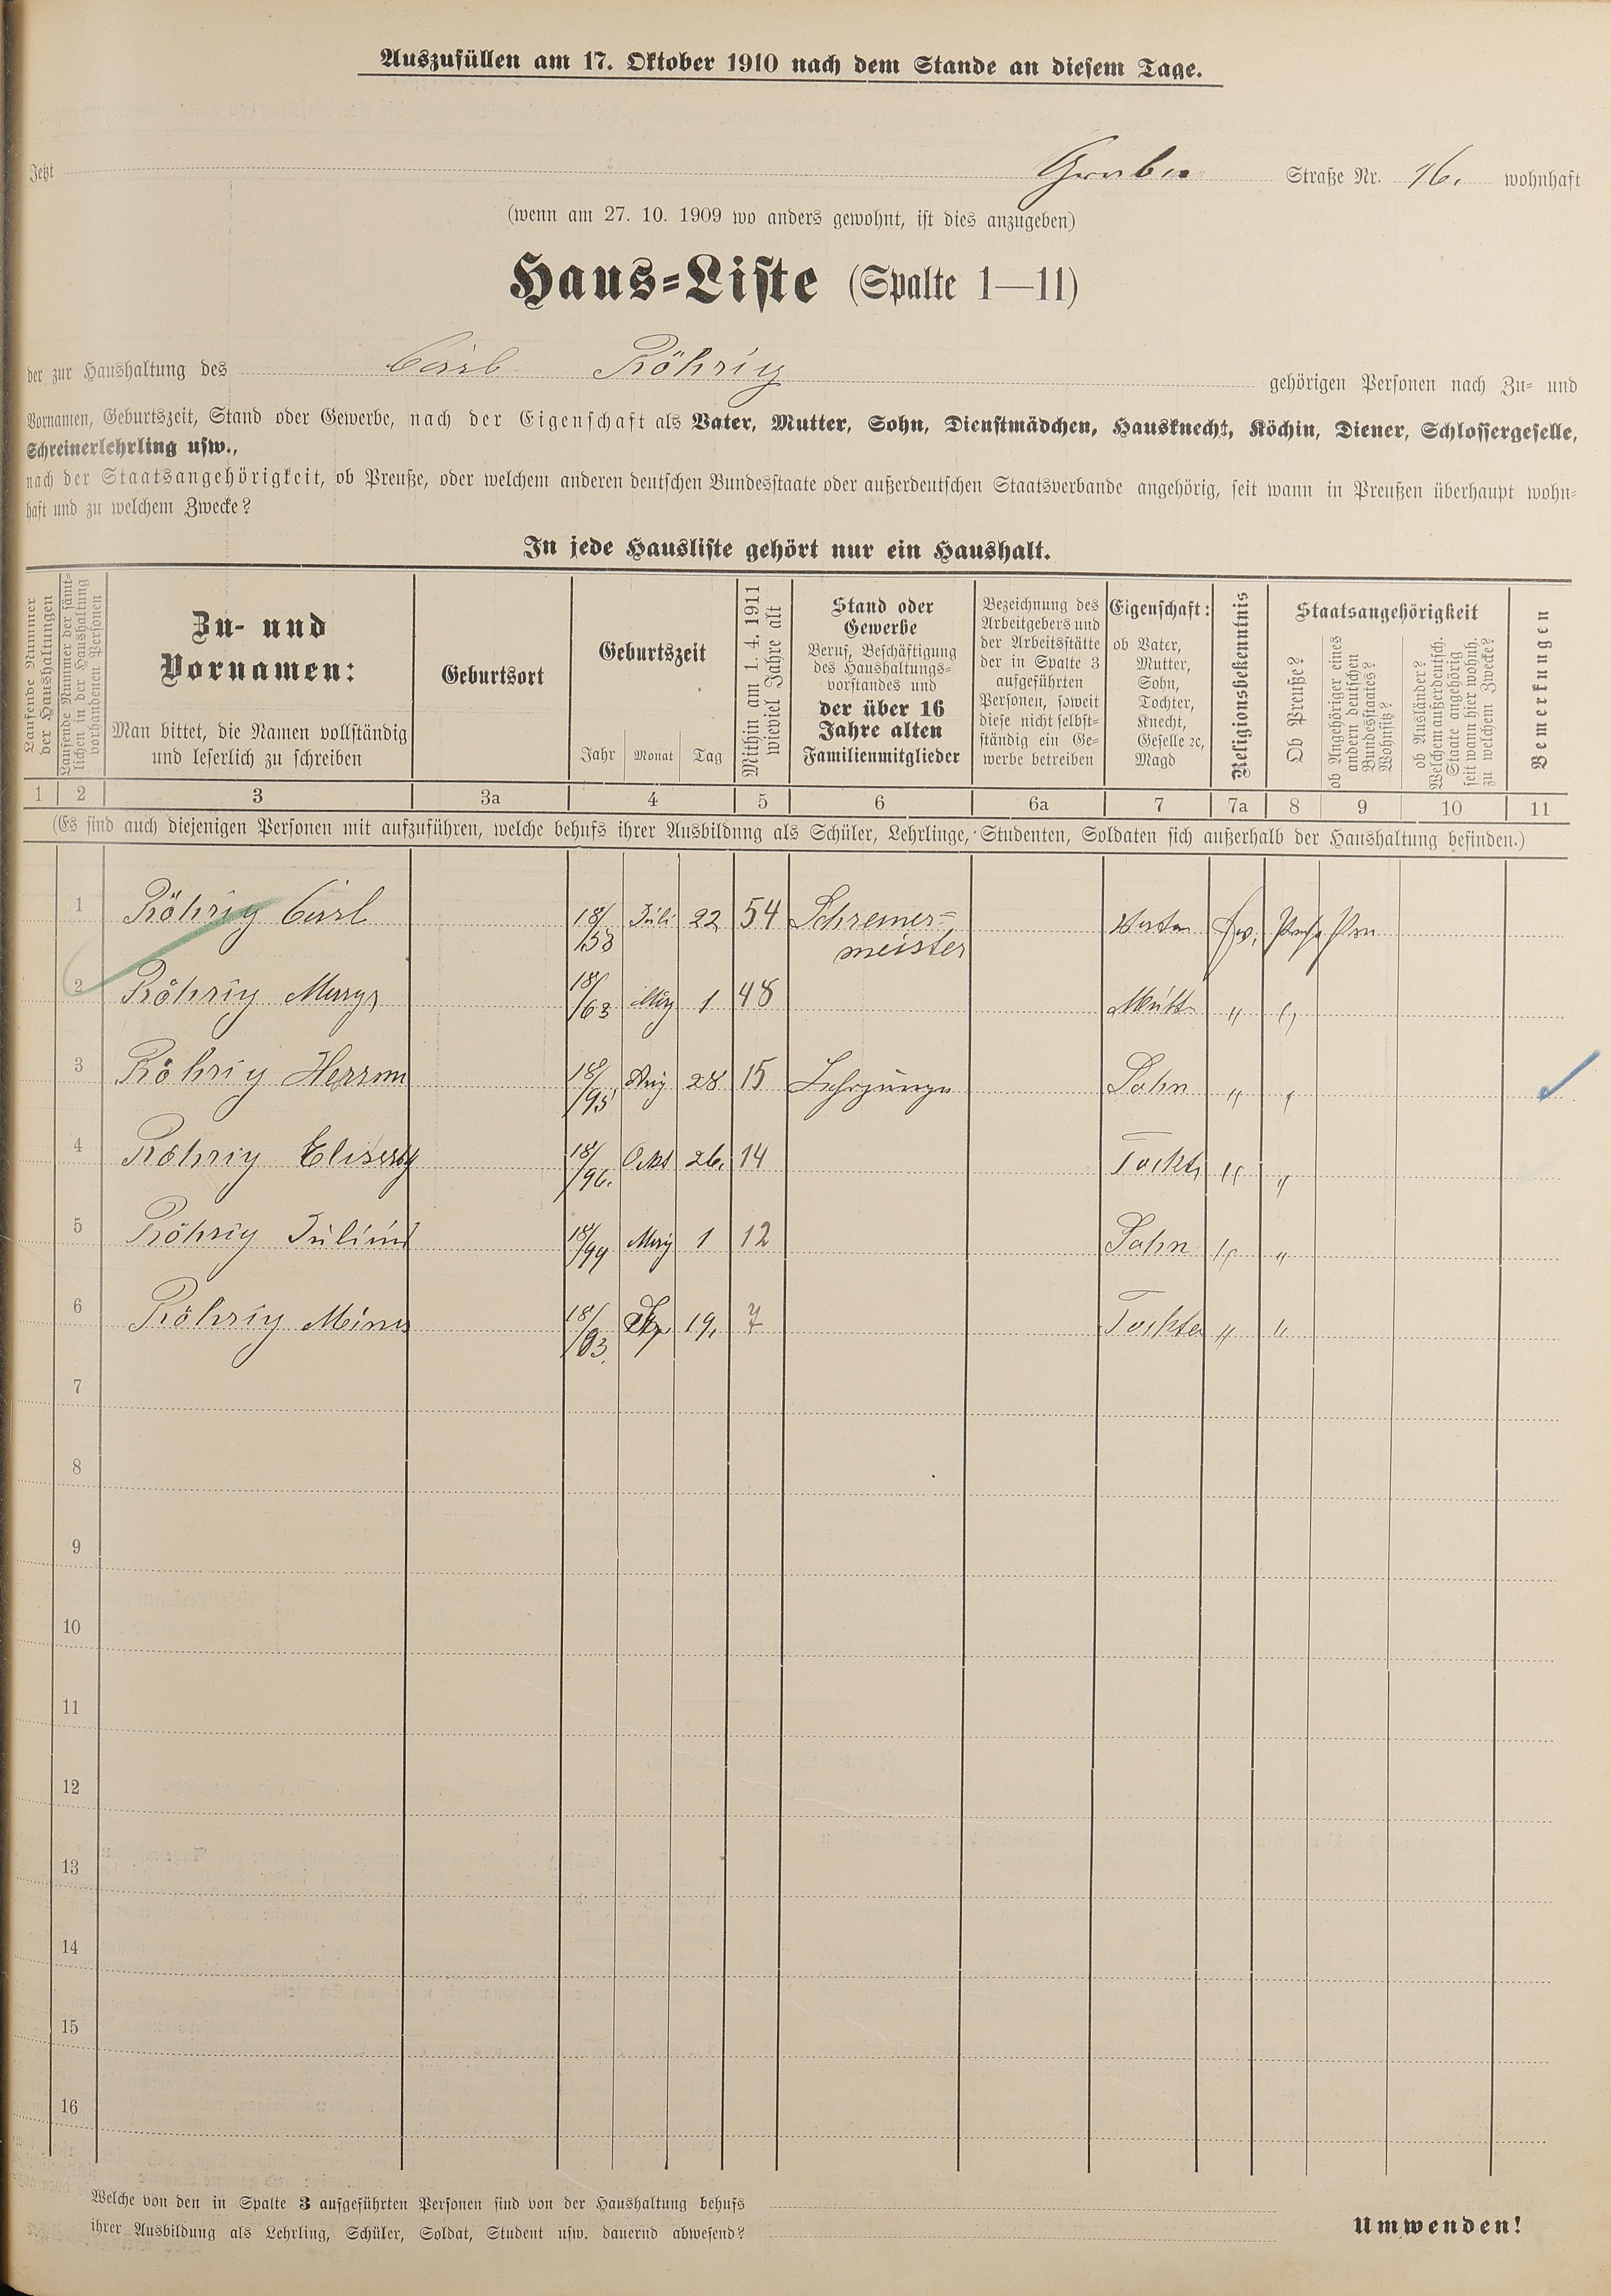 Auszufüllen am 17. Oktober 1910 nach dem Stande an diesem Tage.
Jetzt Straße Nr. 16. wohnhaft
(wenn am 27. 10. 1909 wo anders gewohnt, ist dies anzugeben)
Haus-Liste (Spalte 1—11)
der zur Haushaltung des Carl Röhrig gehörigen Personen nach Zu- und
Vornamen, Geburtszeit, Stand oder Gewerbe, nach der Eigenschaft als Vater, Mutter, Sohn, Dienstmädchen, Hausknecht, Köchin, Diener, Schlossergeselle,
Schreinerlehrling usw.,
nach der Staatsangehörigkeit, ob Preuße, oder welchem anderen deutschen Bundesstaate oder außerdeutschen Staatsverbande angehörig, seit wann in Preußen überhaupt wohn-
haft und zu welchem Zwecke?
In jede Hausliste gehört nur ein Haushalt.
Laufende Nummer
der Haushaltungen
Laufende Nummer der sämt-
lichen in der Haushaltung
vorhandenen Personen
Zu- und
Vornamen:
Man bittet, die Namen vollständig
und leserlich zu schreiben
Geburtsort
Geburtszeit
Jahr Monat Tag
Mithin am 1. 4. 1911
wieviel Jahre alt
Stand oder
Gewerbe
Beruf, Beschäftigung
des Haushaltungs-
vorstandes und
der über 16
Jahre alten
Familienmitglieder
Bezeichnung des
Arbeitgebers und
der Arbeitsstätte
der in Spalte 3
aufgeführten
Personen, soweit
diese nicht selbst-
ständig ein Ge-
werbe betreiben
Eigenschaft:
ob Vater,
Mutter,
Sohn,
Tochter,
Knecht,
Geselle ꝛc,
Magd
Religionsbekenntnis
Staatsangehörigkeit
Ob Preuße?
ob Angehöriger eines
andern deutschen
Bundesstaates?
Wohnsitz?
ob Ausländer?
Welchem außerdeutsch.
Staate angehörig
seit wann hier wohnh.
zu welchem Zwecke?
Bemerkungen
1 2 3 3a 4 5 6 6a 7 7a 8 9 10 11
(Es sind auch diejenigen Personen mit aufzuführen, welche behufs ihrer Ausbildung als Schüler, Lehrlinge, Studenten, Soldaten sich außerhalb der Haushaltung befinden.)
1 Röhrig Carl 18/ Juli 22 54 Schreiner= Vater
meister
2 Röhrig 18/63 1 48 " "
3 Röhrig 18/95 Aug 28 15 Lehrjunge Sohn " "
4 Röhrig 18/96. Okt 26. 14 " "
5 Röhrig 18/99 1 12 Sohn " "
6 Röhrig 19. 7 Tochter " "
7
8
9
10
11
12
13
14
15
16
Welche von den in Spalte 3 aufgeführten Personen sind von der Haushaltung behufs
ihrer Ausbildung als Lehrling, Schüler, Soldat, Student usw. dauernd abwesend?
Umwenden!